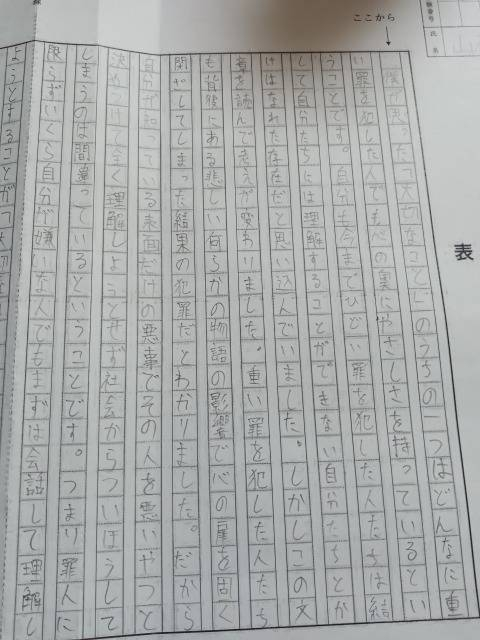 表
ここから
験番号
氏名
僕が思った「大切なこと」のうちの一つはどんなに重
い罪を犯した人でも心の奥にやさしさを持っているとい
うことです。自分も今までひどい罪を犯した人たちは結
して自分たちには理解することができない自分たちとか
けはなれた存在だと思い込んでいました。しかしこの文
章を読んで考えが変わりました。重い罪を犯した人たち
も背後にある悲しい何らかの物語の影響で心の扉を固く
閉ざしてしまった結果の犯罪だとわかりました。だから
自分が知っている表面だけの悪事でその人を悪いやつと
決めつけて全く理解しようとせず社会からついほうして
しまうのは間違っているということです。つまり罪人に
限らずいくら自分が嫌いな人でもまずは会話して理解し
ようとすることが「大切な
線